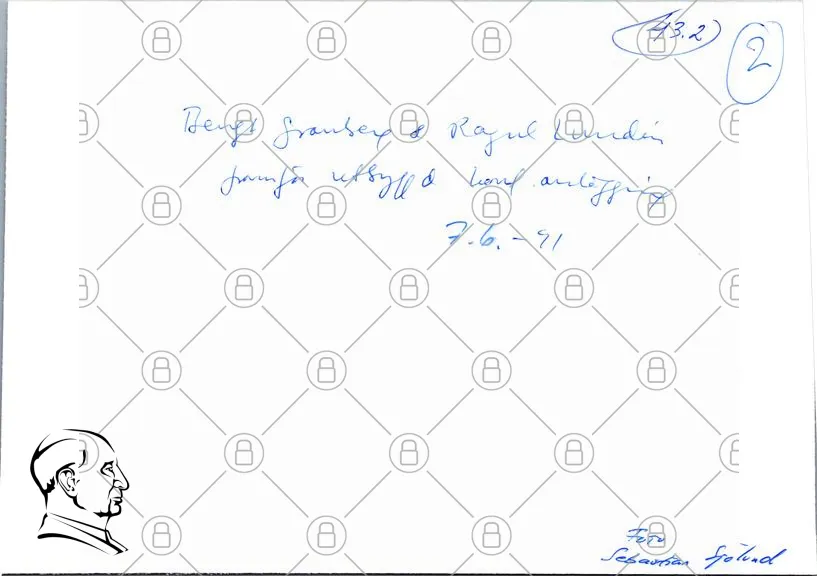 43.2
2
Bengt Granberg & Ragnl Lundin
framför utbyggd konf. anläggning
7.6.-91
Foto
Sebastian Sjölund